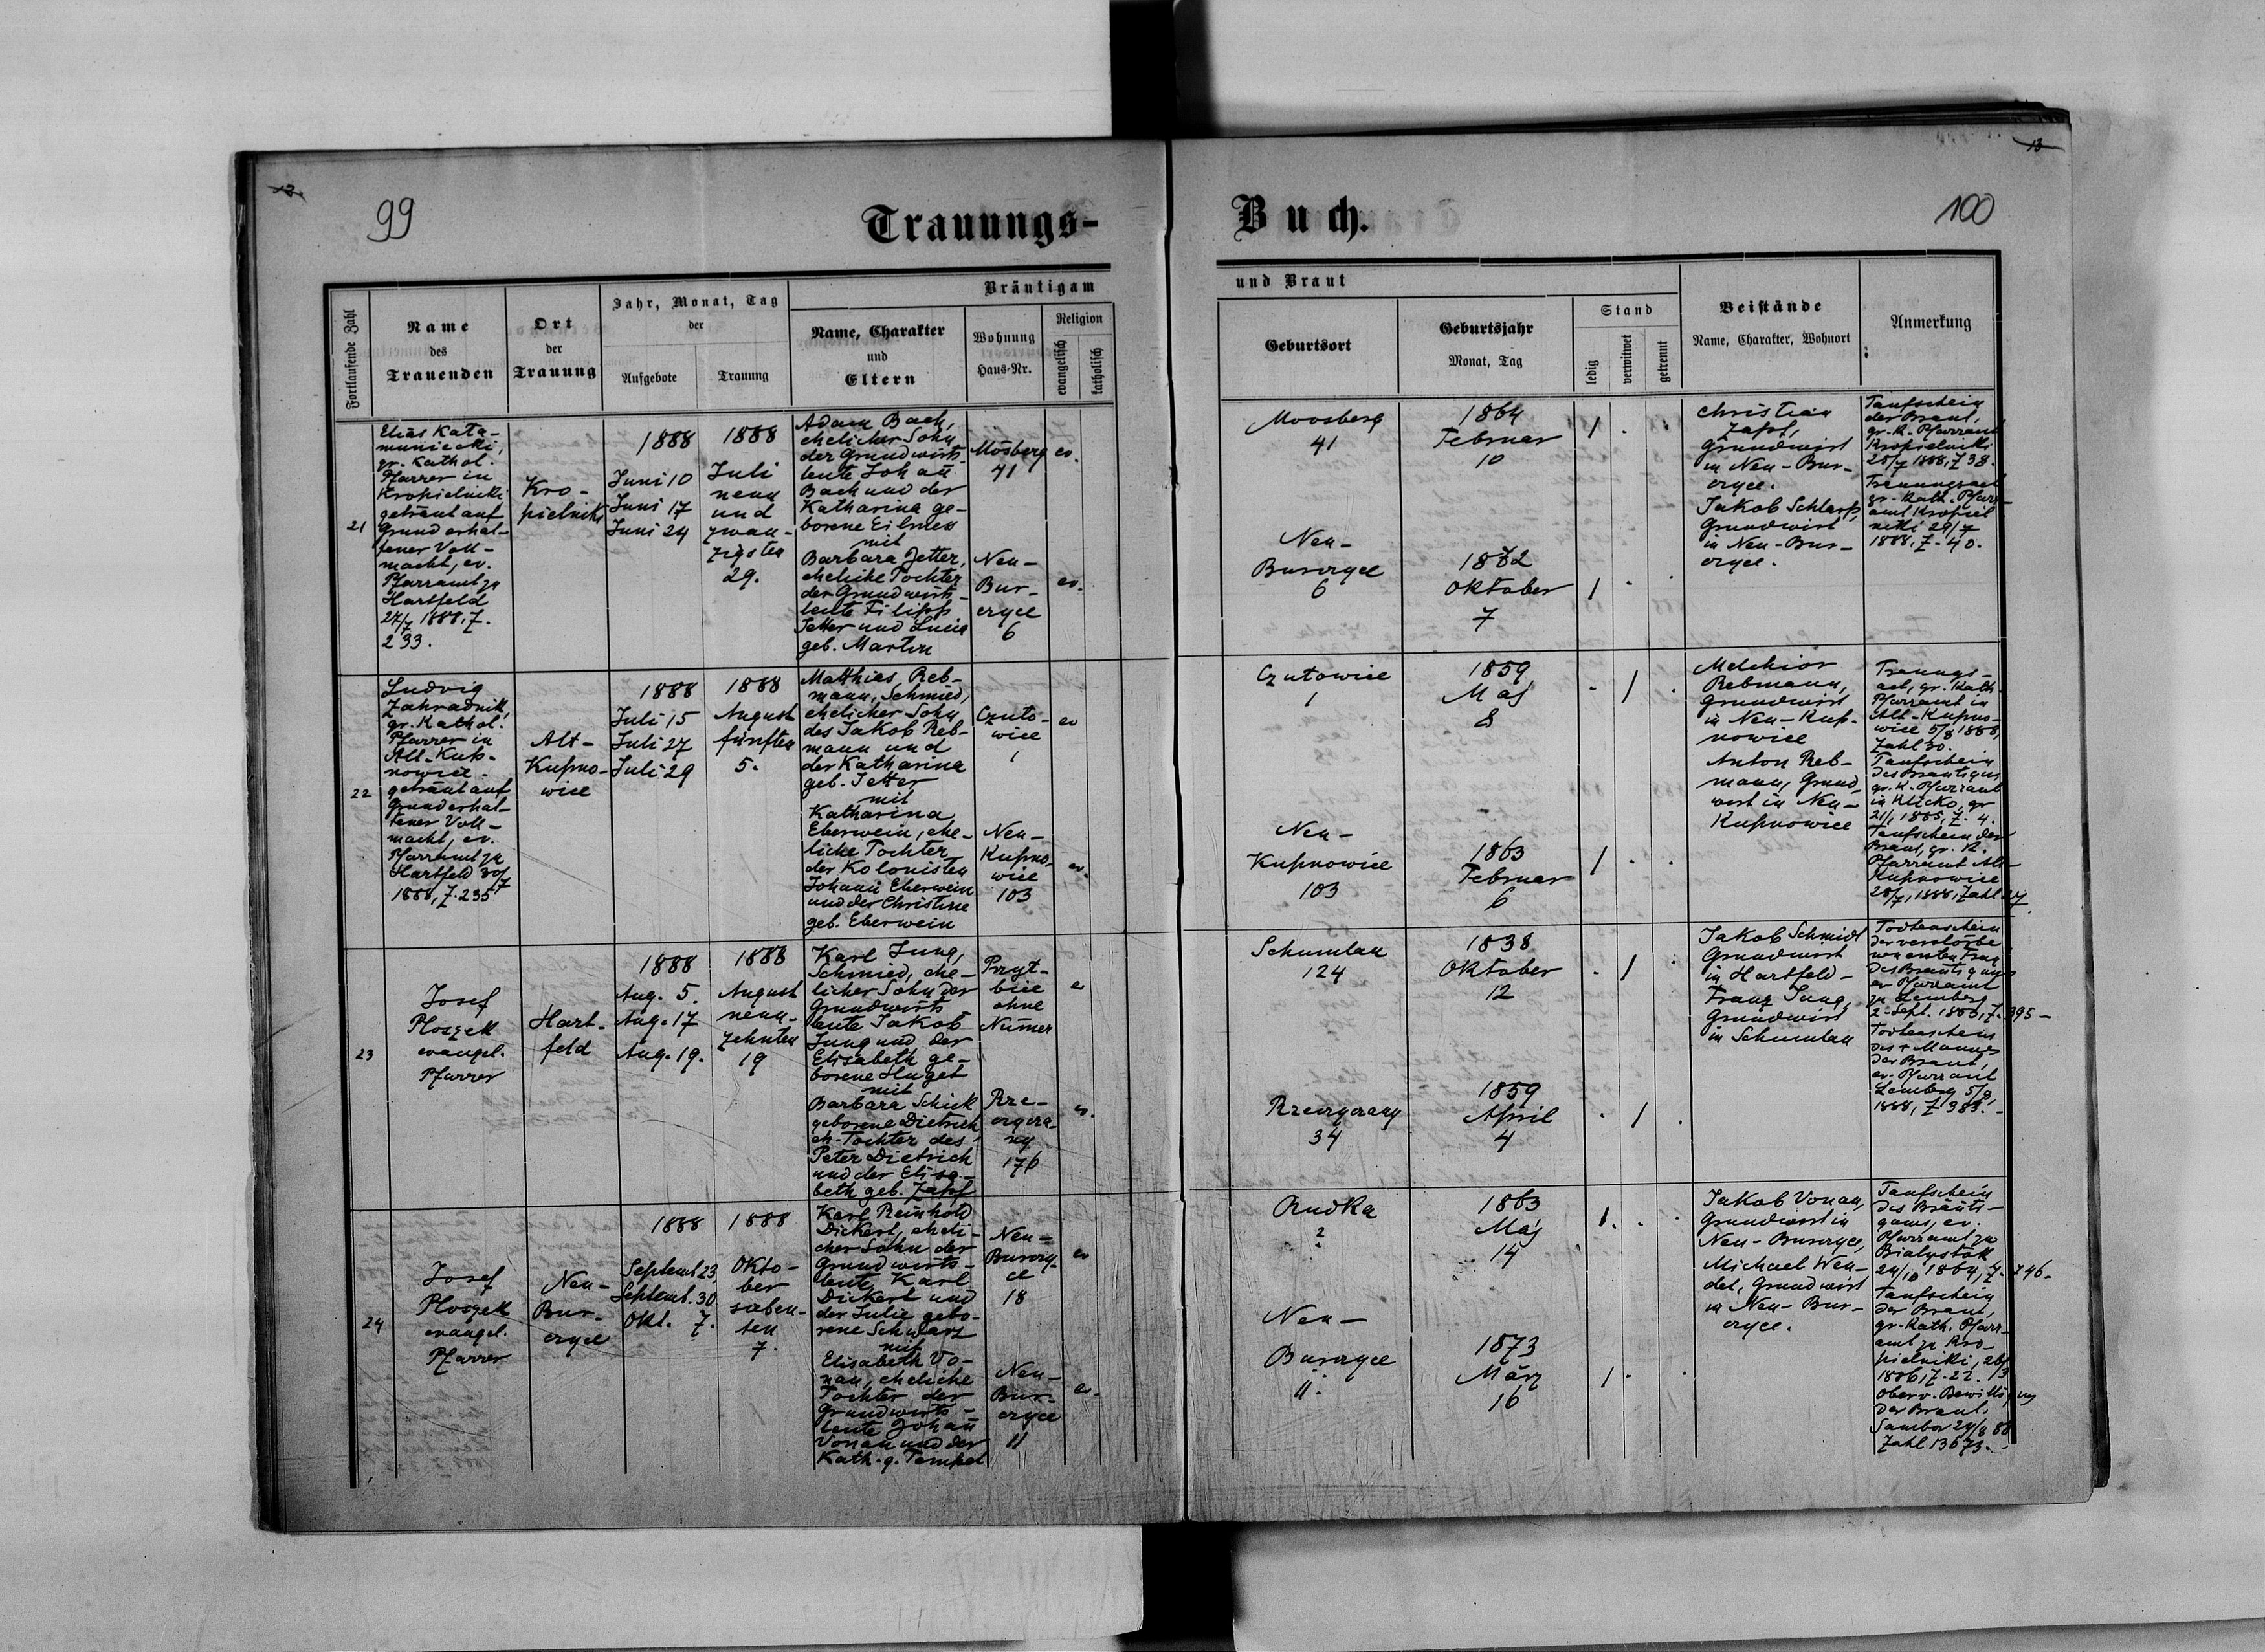 99
Trauungs-
Buch.
100
13
Fortlaufende Zahl
Name
des
Trauenden
Ort
der
Trauung
Jahr, Monat, Tag
der
Aufgebote
Trauung
Bräutigam
Name, Charakter
und
Eltern
Wohnung
Haus-Nr.
Religion
evangelisch
katholisch
und Braut
Geburtsort
Geburtsjahr
Monat, Tag
Stand
ledig
verwitwet
getrennt
Beistände
Name, Charakter, Wohnort
Anmerkung
21
Elias Kata-
municki,
gr. Kathol.
Pfarrer in
Kropielniki
getraut auf
Grund erhal-
tener Voll-
macht, ev.
Pfarramt zu
Hartfeld
27/7 1888, Z.
233.
Kro-
pielniki
1888
Juni 10
Juni 17
Juni 24
1888
Juli
neun
und
zwan-
zigsten
29.
Adam Bach,
ehelicher Sohn
der Grundwirts-
leute Johañ
Bach und der
Katharina ge-
borene Eilmes
mit
Barbara Jetter,
eheliche Tochter
der Grundwirts-
leute Filipp
Jetter und Lucia
geb. Martin
Mosberg
41
Neu-
Bur-
czyce
6
ev.
ev.
Moosberg
41
Neu-
Burczyce
6
1864
Februar
10
1872
Oktober
7
1
1
Christian
Zapf,
Grundwirt
in Neu-Bur-
czyce.
Jakob Schlarp,
Grundwirt
in Neu-Bur-
czyce.
Taufschein
der Braut,
gr. K. Pfarramt
Kropielniki
25/7 1888, Z 38.
Trauungsact
gr. Kath. Pfarr-
amt Kropiel
niki 29/7
1888, Z. 40.
22
Ludvig
Zahradnik,
gr. Kathol.
Pfarrer in
Alt-Kup-
nowice.
getraut auf
Grund erhal-
tener Voll-
macht, ev.
Pfarramt zu
Hartfeld 30/7
1888, Z. 235
Alt-
Kupno-
wice
1888
Juli 15
Juli 27
Juli 29
1888
August
fünften
5.
Matthias Reb-
mann, Schmied,
ehelicher Sohn
des Jakob Reb-
mann und
der Katharina
geb. Jetter
mit
Katharina
Eberwein, ehe-
liche Tochter
der Kolonisten
Johann Eberwein
und der Christine
geb. Eberwein
Czuto-
wice
1
Neu-
Kupno-
wice
103
ev
ev.
Czutowice
1
Neu-
Kupnowice
103
1859
Maj
8
1863
Februar
6
1
1
Melchior
Rebmann,
Grundwirt
in Neu-Kup-
nowice
Anton Reb-
mann, Grund-
wirt in Neu-
Kupnowice
Trauungs-
act, gr. Kath.
Pfarramt in
Alt-Kupno-
wice 5/8 1888,
Zahl 30.
Taufschein
des Bräutigams
gr. K. Pfarramt
in Klicko, gr
21/1 1885, Z. 4.
Taufschein der
Braut, gr. K.
Pfarramt Alt-
Kupnowice
28/7, 1888, Zahl 27.
23
Josef
Ploszek
evangel.
Pfarrer
Hart-
feld
1888
Aug. 5.
Aug. 17
Aug. 19.
1888
August
neun-
zehnten
19
Karl Jung,
Schmied, ehe-
licher Sohn der
Grundwirts
leute Jakob
Jung und der
Elisabeth ge-
borene Huget
mit
Barbara Schick
geborene Dietrich
eh. Tochter des
Peter Dietrich
und der Elisa-
beth geb. Zapf
Pryt-
bice
ohne
Numer
Rze-
czycza-
ny
176
ev
ev.
Schumlau
124
Rzeczyczany
34
1838
Oktober
12
1859
April
4
1
1
Jakob Schmidt
Grundwirt
in Hartfeld-
Franz Jung,
Grundwirt
in Schumlau
Todtenschein
der verstorbe-
nen ersten Frau
des Bräutigams
ev Pfarramt
zu Lemberg
2. Sept. 1880, Z. 395-
Todtenschein
des + Mannes
der Braut,
ev. Pfarramt
Lemberg 5/8,
1888, Z 383.-
24
Josef
Ploszek
evangel.
Pfarrer
Neu-
Bur-
czyce
1888
Septemt 23,
Septemt. 30.
Okt. 7.
1888
Okto-
ber
sieben-
ten
7.
Karl Reinhold
Dickert, eheli-
cher Sohn der
Grundwirts-
leute Karl
Dickert und
der Julie gebo-
rene Schwarz
mit
Elisabeth Vo-
nau, eheliche
Tochter der
Grundwirts-
leute Johañ
Vonau und der
Kath. g. Tempel
Neu-
Burczy-
ce
18
Neu-
Bur-
czyce
11
ev
ev.
Rudka
?
Neu-
Burczyce
11.
1863
Maj
14
1873
März
16
1.
1
Jakob Vonau,
Grundwirt in
Neu-Burczyce,
Michael Wen-
del, Grundwirt
in Neu-Bur-
czyce.
Taufschein
des Bräuti-
gams, ev.
Pfarramt zu
Bialystok
24/10 1864, Z. 746-
Taufschein
der Braut,
gr. Kath. Pfarr-
amt zu Kro-
pielniki,
1886, Z. 22.
Oberv. Bewilligung
der Braut.
Sambor 24/8 88
Zahl 13673.-